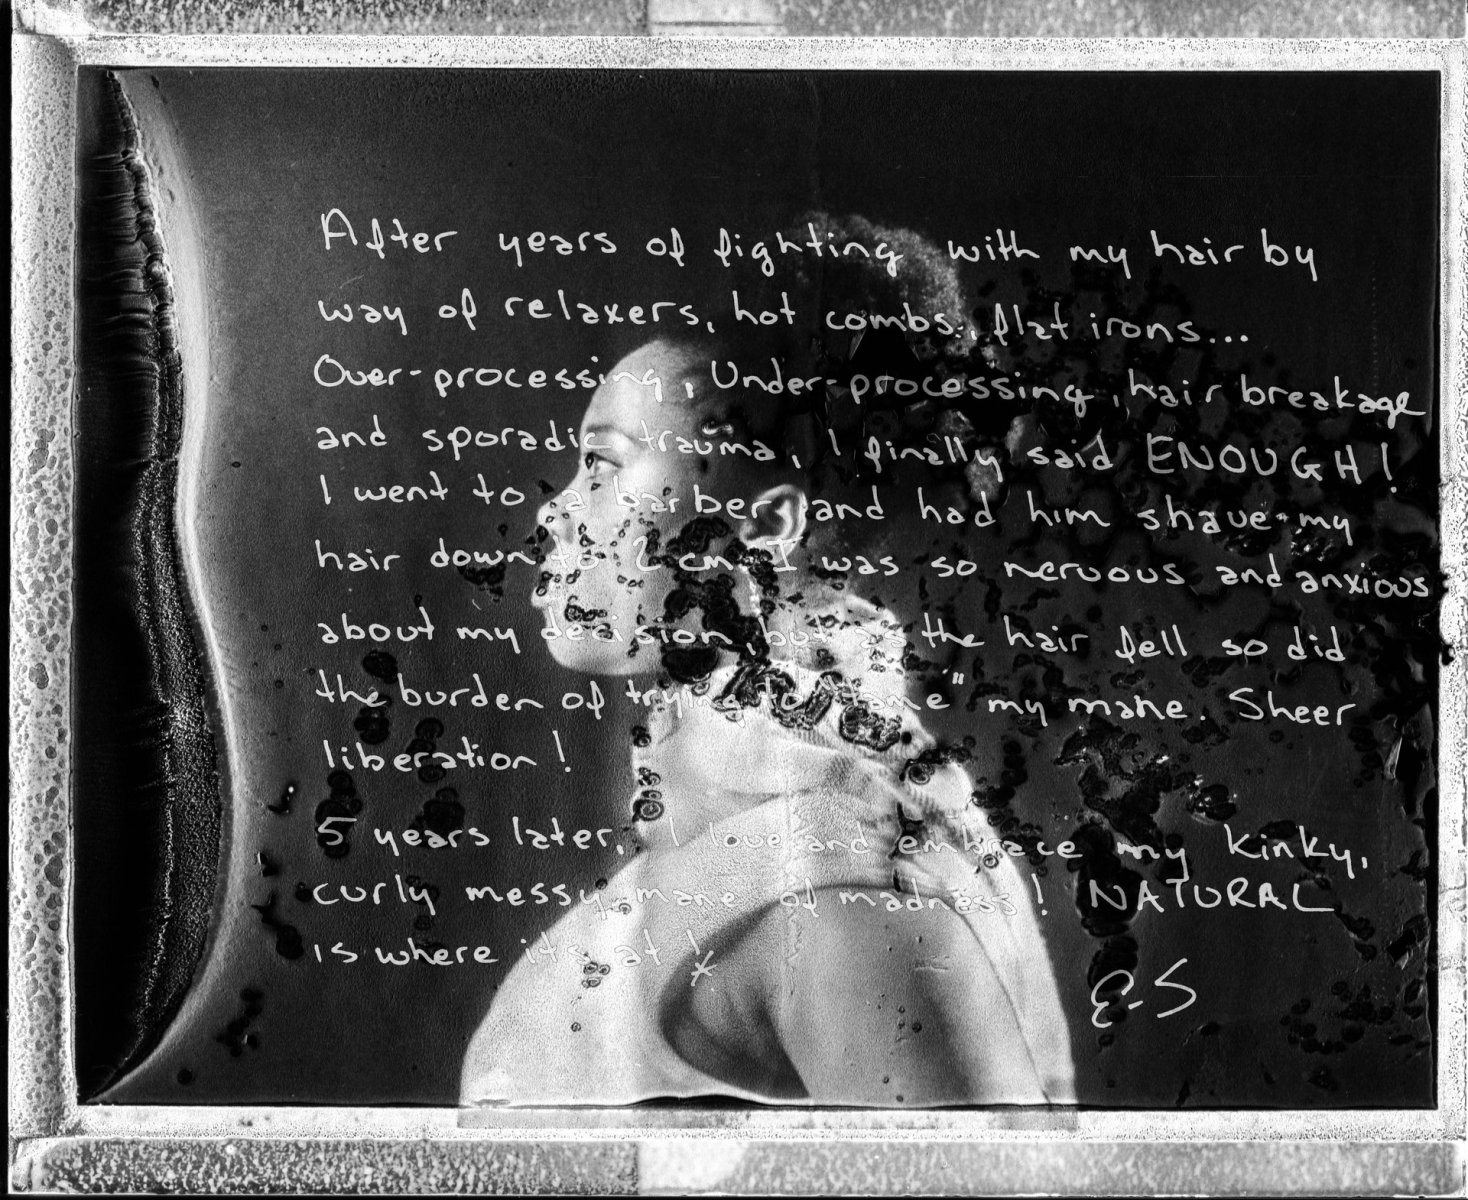 After years of fighting with my hair by
way of relaxers, hot combs, flat irons...
Over-processing, Under-processing, hair breakage
and sporadic trauma, I finally said ENOUGH!
I went to a barber and had him shave my
hair down to 2 cm. I was so nervous and anxious
about my decision, but as the hair fell so did
the burden of trying to "tame" my mane. Sheer
liberation!
5 years later, I love and embrace my kinky,
curly messy mane of madness! NATURAL
is where it's at!
E-S